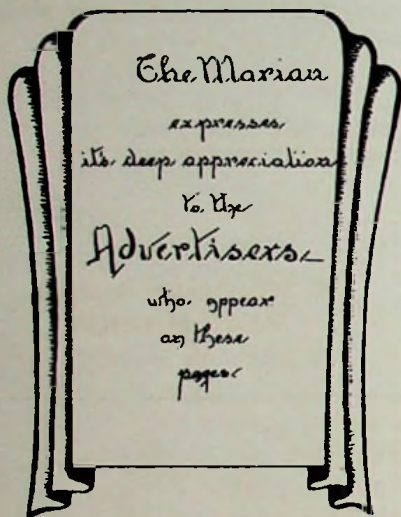 The Marian
expresses
it's deep appreciation
to the
Advertisers
who appear
on these
pages.